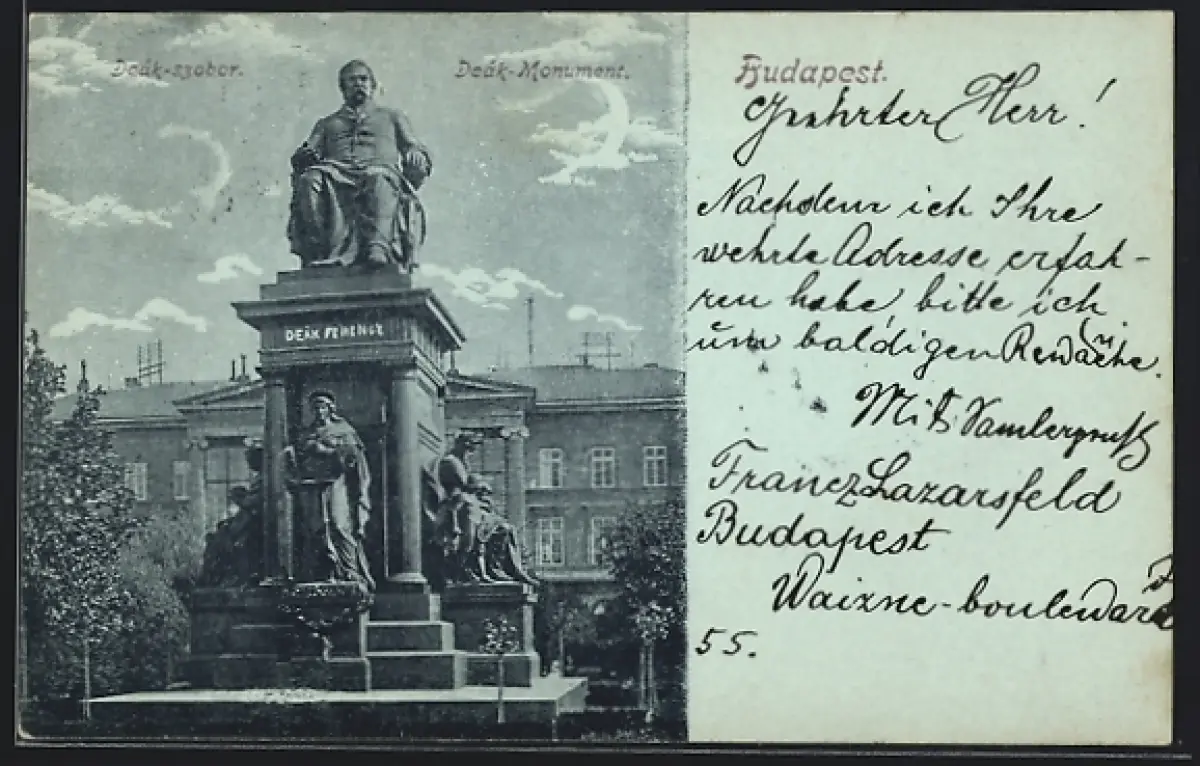 Deák-szobor.
Deák-Monument.
Budapest.
DEÁK FERENCZ
Geehrter Herr!
Nachdem ich Ihre
wehrte Adresse erfah-
ren habe, bitte ich
um baldigen
Mit
Franz Lazarsfeld
Budapest
Waizne-boulevard
55.